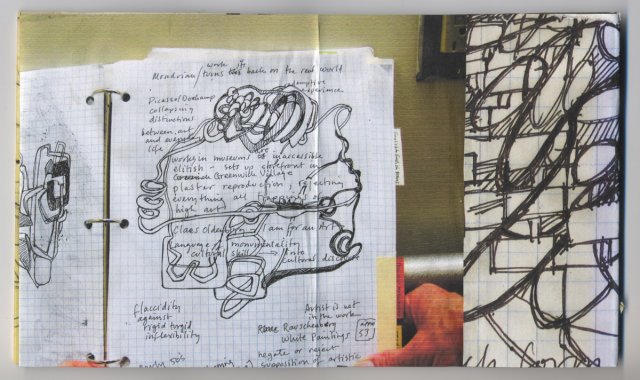 work is
Mondrian/turns his back on the real world
Picasso/Duchamp
collapsing
distinctions
between art
and everyday
life
experience
works in museums inaccessible
elitist - sets up storefront in
Greenwich Village
plaster reproduction, rejecting
everything all
high art
Claes Oldenburg I am for an Art
Language monumentality
cultural skill → into
cultural discourse
flaccidity
against
rigid turgid
inflexibility
Artist is not
in the work
Rauschenberg
White Paintings
53
negate or reject
supposition of artistic
early 50's